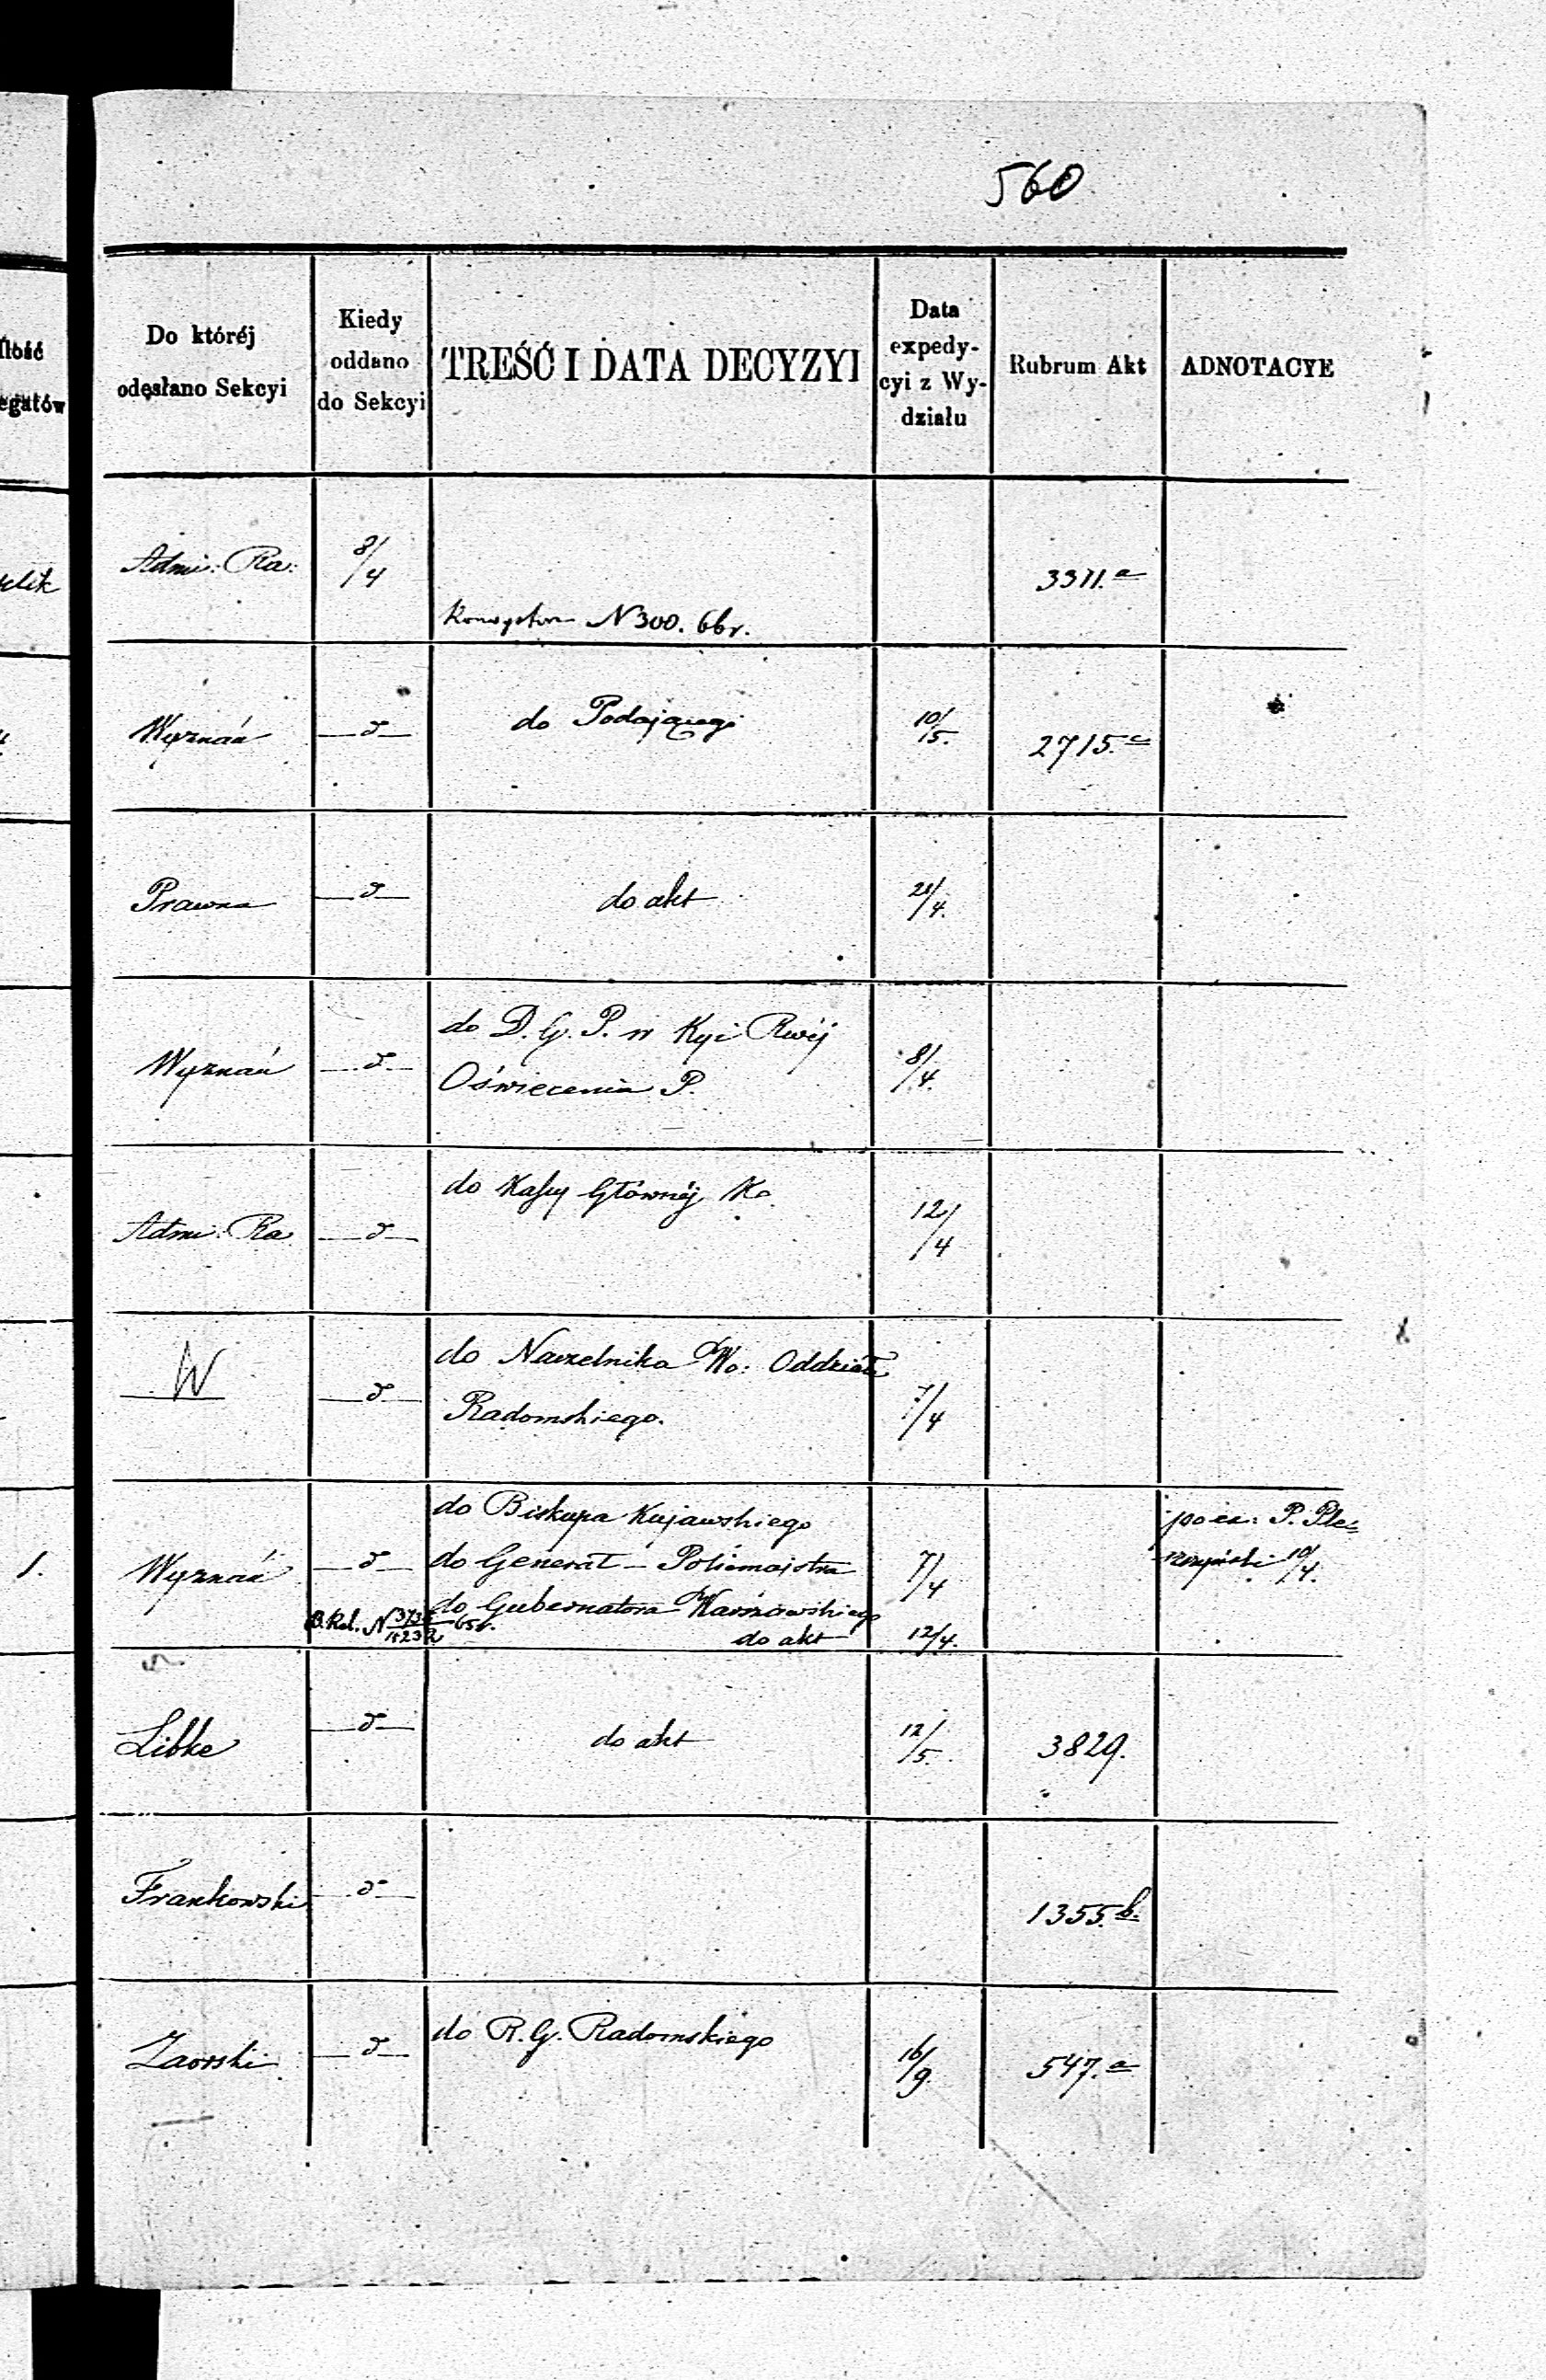 560
Ilość
egatów
Do któréj
odesłano Sekcyi
Kiedy
oddano
do Sekcyi
TREŚĆ I DATA DECYZYI
Data
expedy-
cyi z Wy-
działu
Rubrum Akt
ADNOTACYE
Admi: Ra:
8/4
N 300. 66 r.
3371.a
Wyznań
d
do Podającego
10/5.
2715.c
Prawna
d
do akt
21/4.
Wyznań
d
do D. G. P. w Kyi Rwéj
Oświecenia P.
8/4.
Admi: Ra
d
do Kassy Głównéj Ko.
12/4
W
d
do Naczelnika Wo: Oddziału
Radomskiego.
7/4
1.
Wyznań
d
do Biskupa Kujawskiego
do Generał-Policmajstra
do Gubernatora Warszawskiego
7/4
do akt
12/4.
10/4.
Libke
d
do akt
12/5.
3829.
Frankowski
d
1355.b.
Zaorski
d
do R. G. Radomskiego
16/9.
547.a